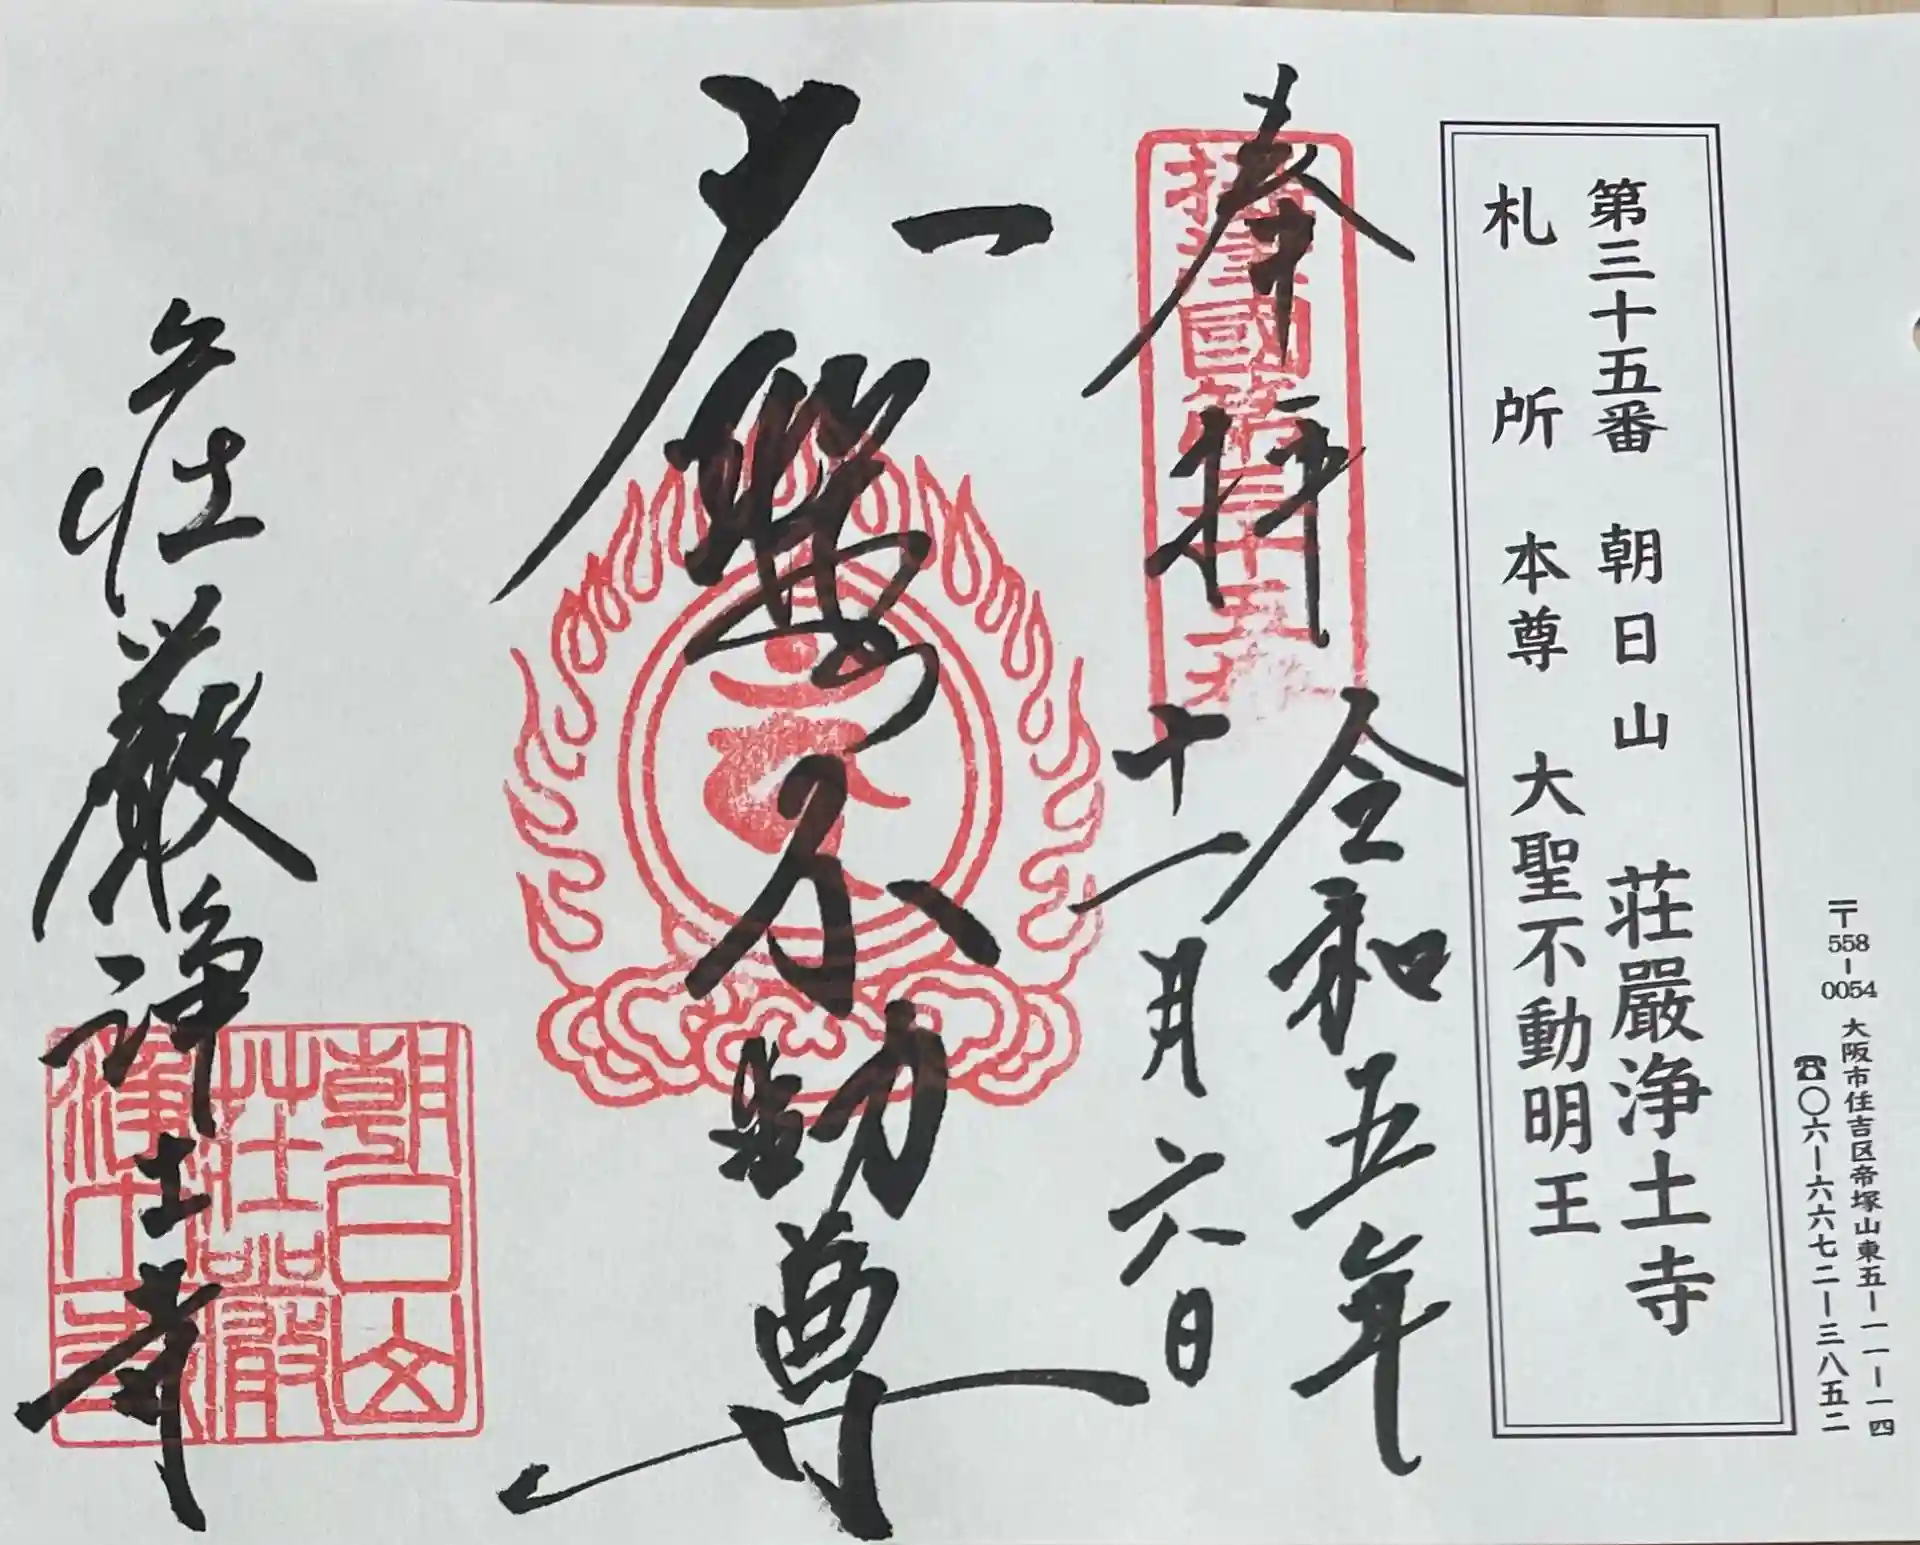 〒558-0054 大阪市住吉区帝塚山東五ー一一ー一四
☎〇六ー六六七二ー三八五二
第三十五番 朝日山 荘嚴浄土寺
札所本尊 大聖不動明王
奉拝
國第三十五
令和五年
十一月六日
大聖不動尊
荘厳浄土寺
朝日山
荘嚴
浄土寺